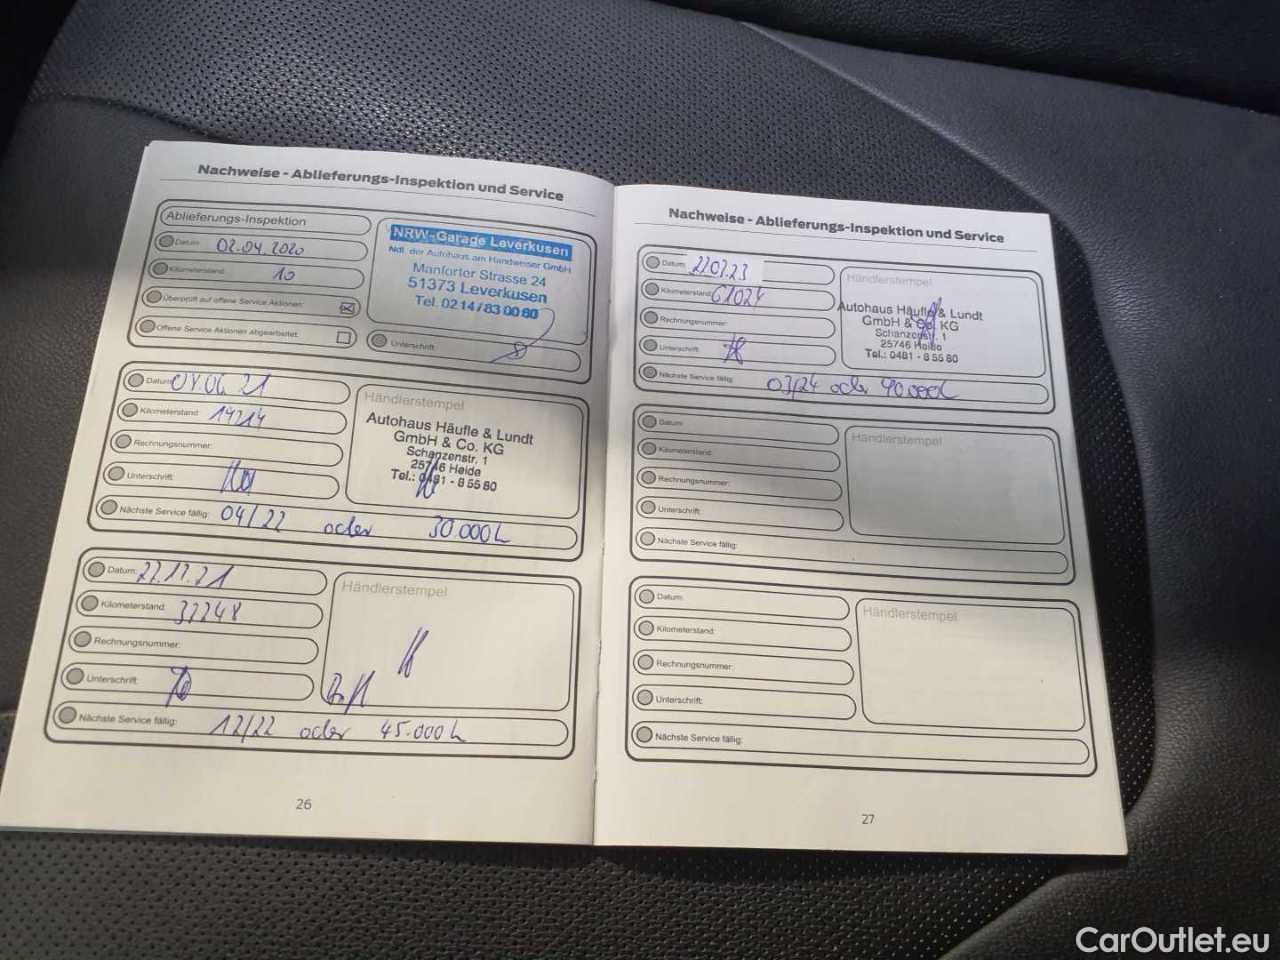 Nachweise - Ablieferungs-Inspektion und Service
Ablieferungs-Inspektion
Datum: 02.04.2020
Kilometerstand: 10
Überprüft auf offene Service Aktionen:
Offene Service Aktionen abgearbeitet:
NRW-Garage Leverkusen
Ndl. der Autohaus am Handweiser GmbH
Manforter Strasse 24
51373 Leverkusen
Tel. 0214/83 00 80
Unterschrift:
Datum: 01.06.21
Kilometerstand: 14214
Rechnungsnummer:
Unterschrift:
Händlerstempel
Autohaus Häufle & Lundt
GmbH & Co. KG
Schanzenstr. 1
25746 Heide
Tel.: 0481 - 8 55 80
Nächste Service fällig: 04/22 oder 30.000
Datum: 22.12.21
Kilometerstand: 32248
Rechnungsnummer:
Unterschrift:
Händlerstempel
Nächste Service fällig: 12/22 oder 45.000
26
Nachweise - Ablieferungs-Inspektion und Service
Datum:
Kilometerstand: 61024
Rechnungsnummer:
Unterschrift:
Händlerstempel
Autohaus Häufle & Lundt
GmbH & Co. KG
Schanzenstr. 1
25746 Heide
Tel.: 0481 - 8 55 80
Nächste Service fällig: 03/24 oder 90.000
Datum:
Kilometerstand:
Rechnungsnummer:
Unterschrift:
Händlerstempel
Nächste Service fällig:
Datum:
Kilometerstand:
Rechnungsnummer:
Unterschrift:
Händlerstempel
Nächste Service fällig:
27
CarOutlet.eu